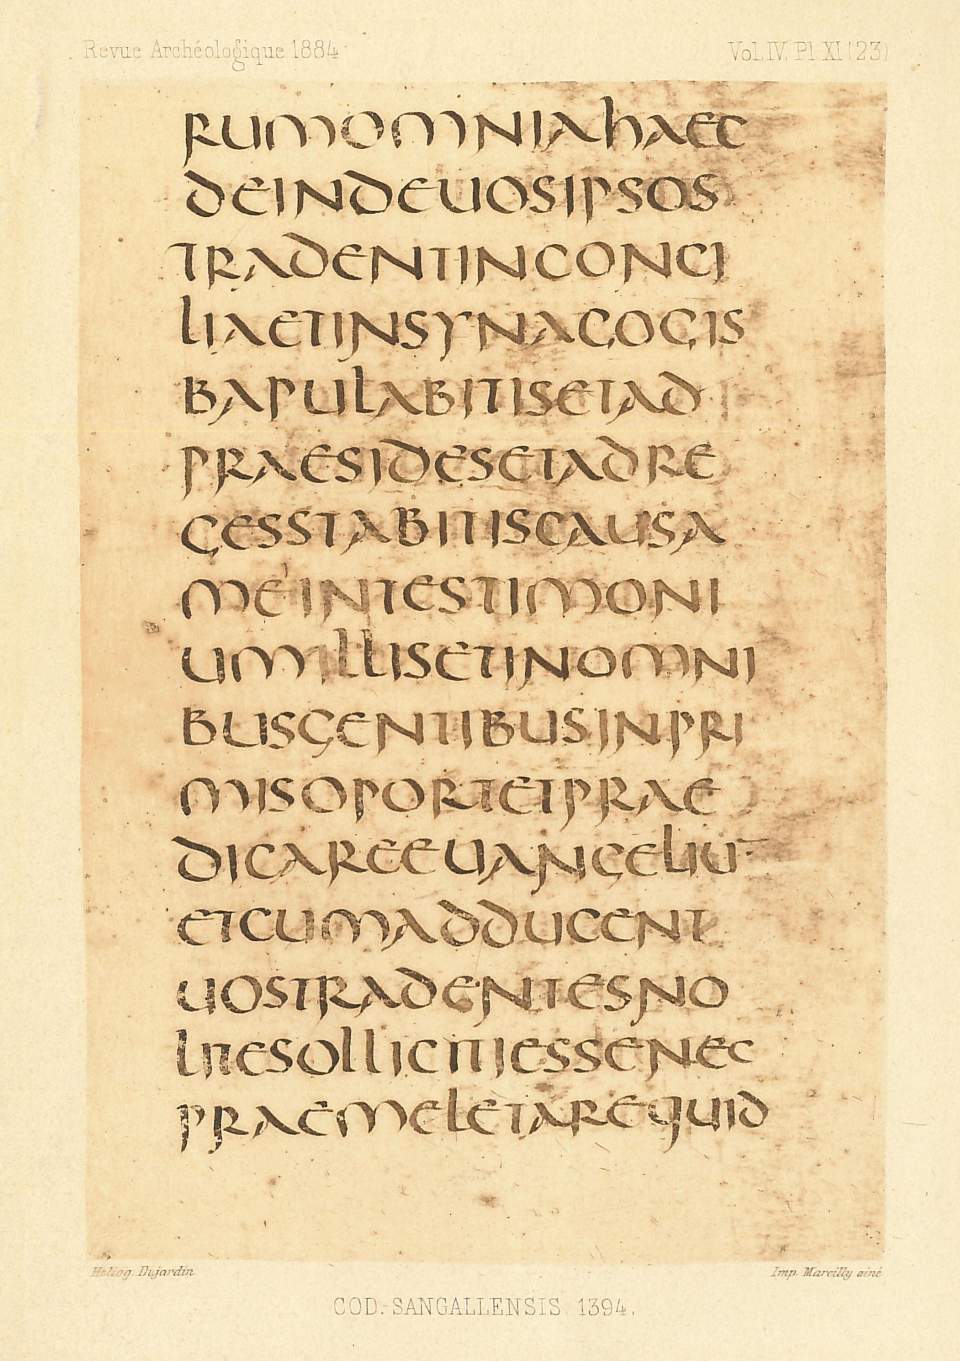 Revue Archéologique 1884
Vol. IV. Pl. XI (23)
RUMOMNIAhAEC
DEINDEUOSIPSOS
TRADENTINCONCI
LIAETINSYNAGOGIS
BAPULABITISETAD
PRAESIDESETADRE
GESSTABITISCAUSA
MEINTESTIMONI
UMILLISETINOMNI
BUSGENTIBUSINPRI
MISOPORTETPRAE
DICAREEUANGELIŪ
ETCUMADDUCENT
UOSTRADENTESNO
LITESOLLICITIESSENEC
PRAEMELETAREQUID
Heliog. Dujardin
Imp. Marcilly ainé
COD. SANGALLENSIS 1394.